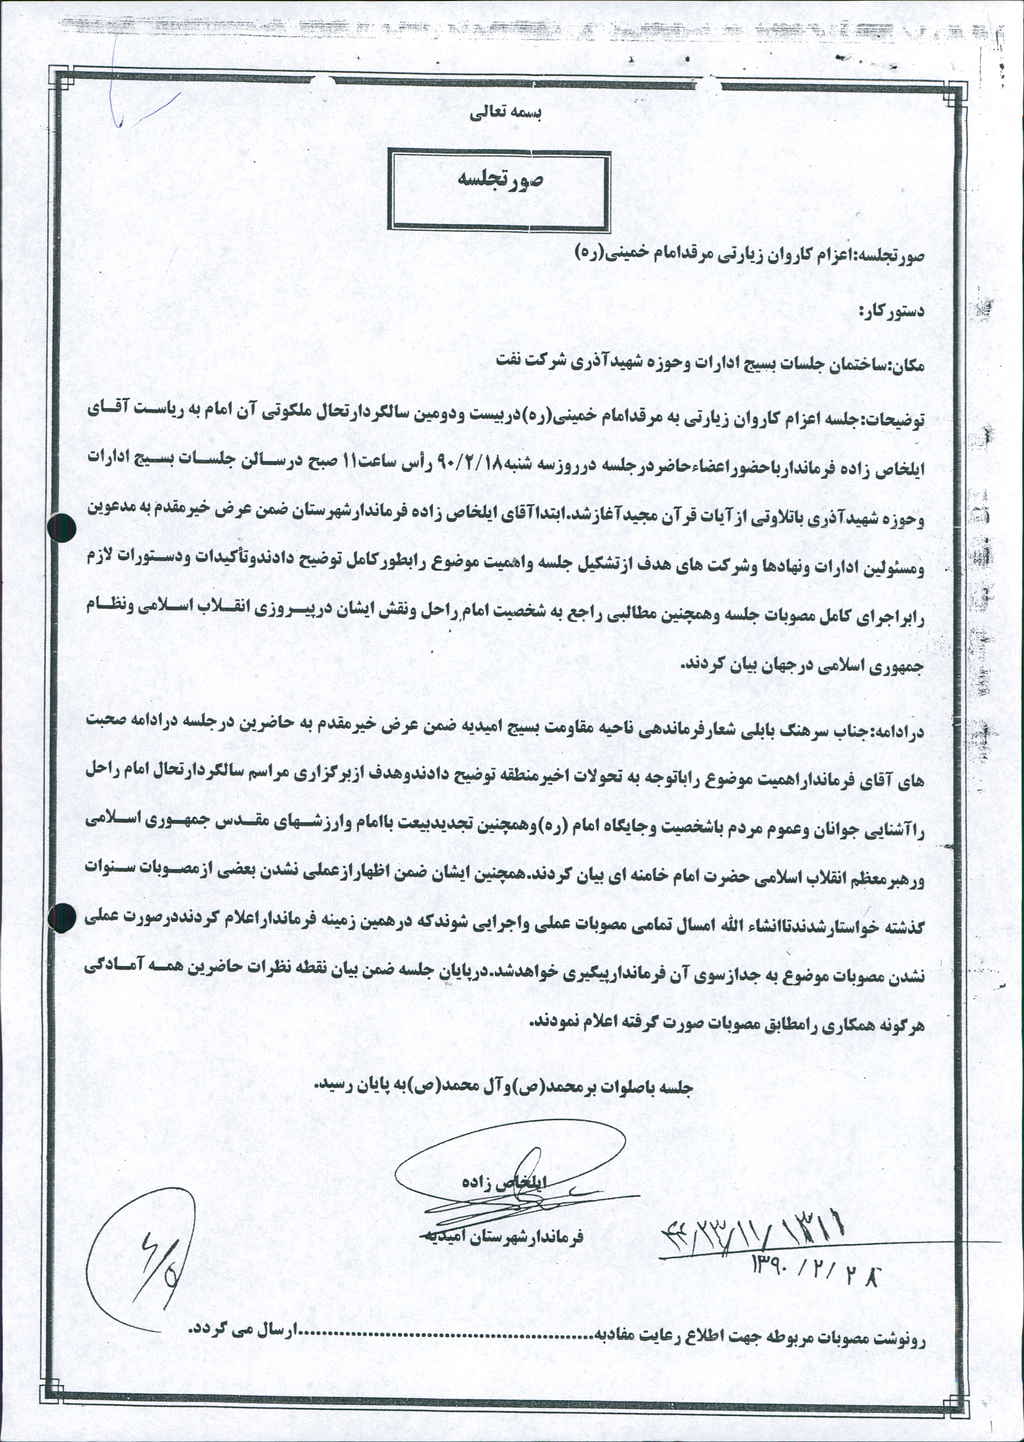 بسمه تعالی
صورتجلسه
صورتجلسه:اعزام کاروان زیارتی مرقدامام خمینی(ره)
دستورکار:
مکان:ساختمان جلسات بسیج ادارات وحوزه شهیدآذری شرکت نفت
توضیحات:جلسه اعزام کاروان زیارتی به مرقدامام خمینی(ره)دربیست ودومین سالگردارتحال ملکوتی آن امام به ریاست آقای
ایلخاص زاده فرماندارباحضوراعضاءحاضردرجلسه درروزسه شنبه۹۰/۲/۱۸ رأس ساعت۱۱ صبح درسالن جلسات بسیج ادارات
وحوزه شهیدآذری باتلاوتی ازآیات قرآن مجیدآغازشد.ابتداآقای ایلخاص زاده فرماندارشهرستان ضمن عرض خیرمقدم به مدعوین
ومسئولین ادارات ونهادها وشرکت های هدف ازتشکیل جلسه واهمیت موضوع رابطورکامل توضیح دادندوتأکیدات ودستورات لازم
رابراجرای کامل مصوبات جلسه وهمچنین مطالبی راجع به شخصیت امام راحل ونقش ایشان درپیروزی انقلاب اسلامی ونظام
جمهوری اسلامی درجهان بیان کردند.
درادامه:جناب سرهنگ بابلی شعارفرماندهی ناحیه مقاومت بسیج امیدیه ضمن عرض خیرمقدم به حاضرین درجلسه درادامه صحبت
های آقای فرمانداراهمیت موضوع راباتوجه به تحولات اخیرمنطقه توضیح دادندوهدف ازبرگزاری مراسم سالگردارتحال امام راحل
راآشنایی جوانان وعموم مردم باشخصیت وجایگاه امام (ره)وهمچنین تجدیدبیعت باامام وارزشهای مقدس جمهوری اسلامی
ورهبرمعظم انقلاب اسلامی حضرت امام خامنه ای بیان کردند.همچنین ایشان ضمن اظهارازعملی نشدن بعضی ازمصوبات سنوات
گذشته خواستارشدندتاانشاء الله امسال تمامی مصوبات عملی واجرایی شوندکه درهمین زمینه فرمانداراعلام کردنددرصورت عملی
نشدن مصوبات موضوع به جدازسوی آن فرماندارپیگیری خواهدشد.درپایان جلسه ضمن بیان نقطه نظرات حاضرین همه آمادگی
هرگونه همکاری رامطابق مصوبات صورت گرفته اعلام نمودند.
جلسه باصلوات برمحمد(ص)وآل محمد(ص)به پایان رسید.
ایلخاص زاده
فرماندارشهرستان امیدیه
۱۳۹۰/۲/۲۸
رونوشت مصوبات مربوطه جهت اطلاع رعایت مفادبه..................................................ارسال می گردد.